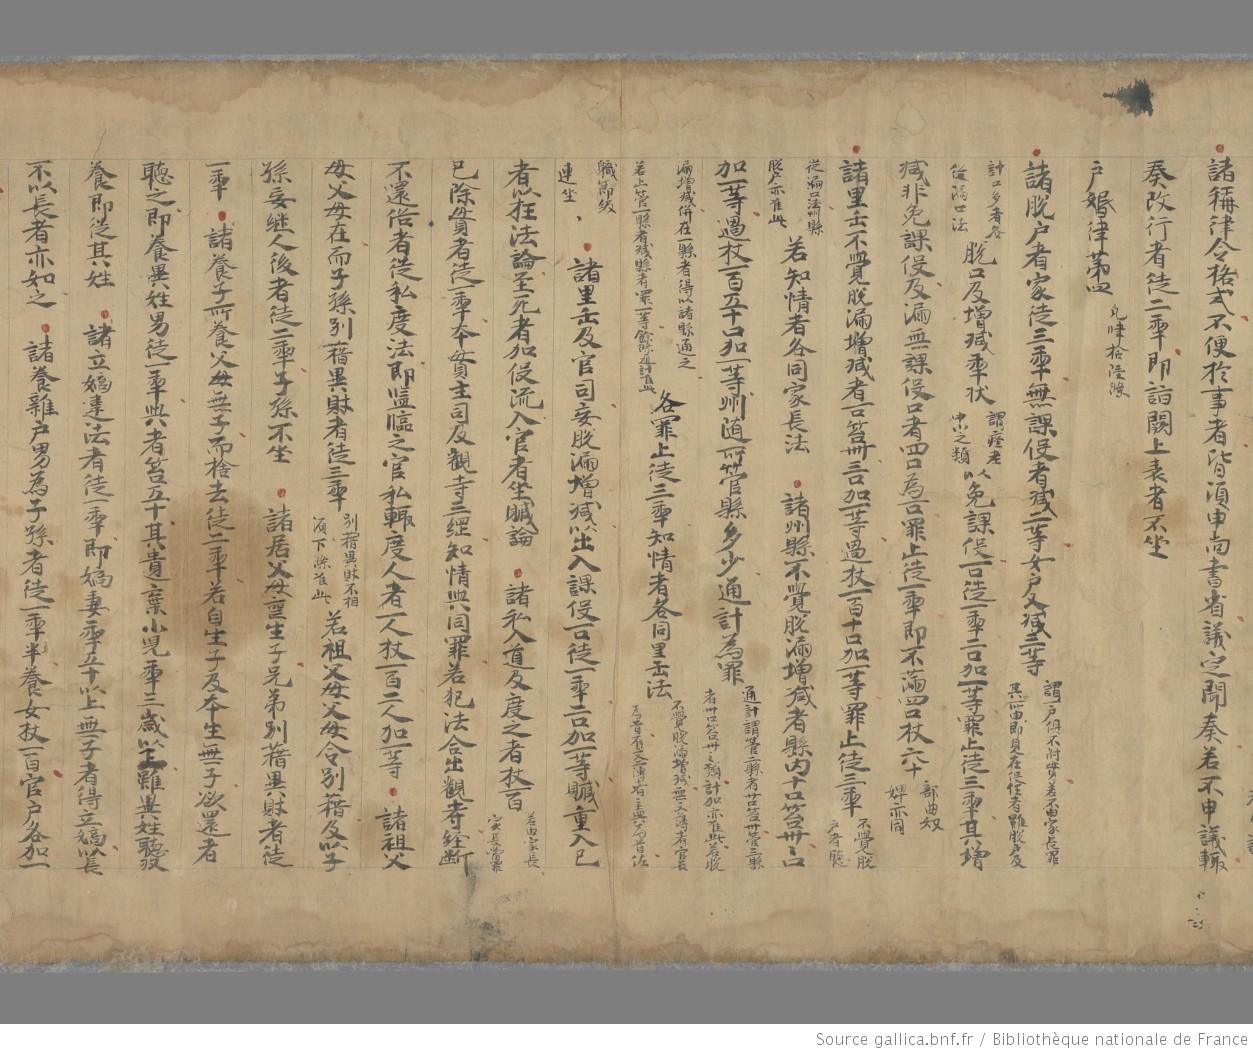 諸稱律令格式不便於事者皆須申尚書省議定聞奏若不申議輒
奏改行者徒二年即詣闕上表者不坐
戶婚律第四 凡肆拾陸條
諸脫戶者家徒三年無課伇者減一等女戶又減三等 謂一戶俱不附貫若不由家長罪
其所由即見在伇任者雖脫戶及
計口多者各
從漏口法 脫口及增減年狀 謂疾老
中小之類 以免課伇一口徒一年二口加一等罪止徒三年其增
減非免課伇及漏無課伇口者四口為一口罪止徒一年即不滿四口杖六十 部曲奴
婢亦同
諸里正不覺脫漏增減者一口笞卌三口加一等過杖一百十口加一等罪止徒三年 不覺脫
戶者聽
從漏口法州縣
脫戶亦准此 若知情者各同家長法 諸州縣不覺脫漏增減者縣內十口笞卅三口
加一等過杖一百五十口加一等州隨所管縣多少通計為罪 通計謂管二縣者廿口笞卅管三縣
者卅口笞卅之類計加亦准此若脫
漏增減併在一縣者得以諸縣通之
若止管一縣者減縣者罪一等餘所通計准此 各罪止徒三年知情者各同里正法 不覺脫漏增減無文簿者官長
為首有文簿者主典為首佐
職節級
連坐 諸里正及官司妄脫漏增減以出入課伇一口徒一年二口加一等贓重入己
者以枉法論至死者加伇流入官者坐贓論 諸私入道及度之者杖一百 若由家長
家長當罪
已除貫者徒一年本貫主司及觀寺三綱知情與同罪若犯法合出觀寺經斷
不還俗者從私度法即監臨之官私輒度人者一人杖一百二人加一等 諸祖父
母父母在而子孫別籍異財者徒三年 別籍異財不相
須下條准此 若祖父母父母令別籍及以子
孫妄繼人後者徒二年子孫不坐 諸居父母喪生子兄弟別籍異財者徒
一年 諸養子所養父母無子而捨去徒二年若自生子及本生無子欲還者
聽之即養異姓男徒一年與者笞五十其遺棄小兒年三歲以下雖異姓聽收
養即從其姓 諸立嫡違法者徒一年即嫡妻年五十以上無子者得立嫡以長
不以長者亦如之 諸養雜戶男為子孫者徒一年半養女杖一百官戶各加一
Source gallica.bnf.fr / Bibliothèque nationale de France